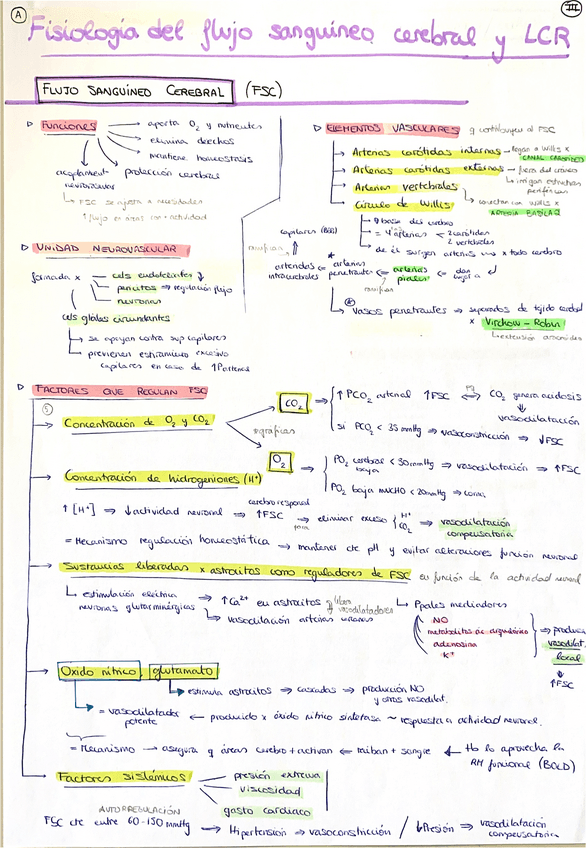 A
III
Fisiología del flujo sanguíneo cerebral y LCR
FLUJO SANGUÍNEO CEREBRAL (FSC)
Funciones
→ aporta O₂ y nutrientes
→ elimina desechos
→ mantiene homeostasis
protección cerebral
acoplamient
neurovascular
↳ FSC se ajusta a necesidades
↑ flujo en áreas con + actividad
UNIDAD NEUROVASCULAR
formada x
céls endoteliales
pericitos ⇒ regulación flujo
neuronas
céls gliales circundantes
→ se apoyan contra sup capilares
→ previenen estiramiento excesivo
capilares en caso de ↑Parterial
ELEMENTOS VASCULARES q contribuyen al FSC
→ Arterias carótidas internas → llegan a Willis x
CANAL CAROTÍDEO
→ Arterias carótidas externas → fuera del cráneo
↳ irrigan estructuras
periféricas
→ Arterias vertebrales
↳ conectan con Willis x
ARTERIA BASILAR
→ Círculo de Willis
→ base del cerebro
= 4 arterias < 2 carótidas
2 vertebrales
→ de él surgen arterias → x todo cerebro
capilares (BHE)
ramifican
arteriolas ⇐ arterias
intracerebrales penetrantes ⇐ arterias
piales ⇐ dan
lugar a
ramifican
→ Vasos penetrantes → separados de tejido cerebral
x Virchow-Robin
↳ extensión aracnoides
FACTORES QUE REGULAN FSC
⑤
→ Concentración de O₂ y CO₂
+ gráficas
CO₂ ⇒ ↑ PCO₂ arterial ↑FSC ⟺ CO₂ genera acidosis
⇓
vasodilatación
si PCO₂ < 35 mmHg ⇒ vasoconstricción ⇒ ↓FSC
O₂ ⇒ PO₂ cerebral < 30 mmHg ⇒ vasodilatación ⇒ ↑FSC
baja
PO₂ baja MUCHO < 20 mmHg ⇒ coma.
→ Concentración de hidrogeniones (H⁺)
↑ [H⁺] ⇒ ↓ actividad neuronal ⇒ cerebro responde
↑FSC ⇒ para eliminar exceso { H⁺
CO₂ ⇒ vasodilatación
compensatoria
= Mecanismo regulación homeostática → mantener cte pH y evitar alteraciones función neuronal
→ Sustancias liberadas x astrocitos como reguladores de FSC en función de la actividad neuronal
↳ estimulación eléctrica
neuronas glutaminérgicas ⇒ ↑Ca²⁺ en astrocitos
libera
vasodilatadores
↳ vasodilación arteriolas
↳ Ppales mediadores
NO
metabolitos ác. araquidónico
adenosina
K⁺
⇒ produce
vasodilat.
local
⇓
↑FSC
→ Óxido nítrico, glutamato
→ estimula astrocitos ⇒ cascadas ⇒ producción NO
y otros vasodilat.
= vasodilatador ← producido x óxido nítrico sintetasa ~ respuesta a actividad neuronal.
potente
= Mecanismo → asegura q áreas cerebro + activan ⇐ reciban + sangre ← Ho lo aprovecha la
RM funcional (BOLD)
→ Factores sistémicos
presión externa
viscosidad
gasto cardíaco
AUTORREGULACIÓN
FSC cte entre 60-150 mmHg → Hipertensión ⇒ vasoconstricción / ↓Presión ⇒ vasodilatación
compensatoria